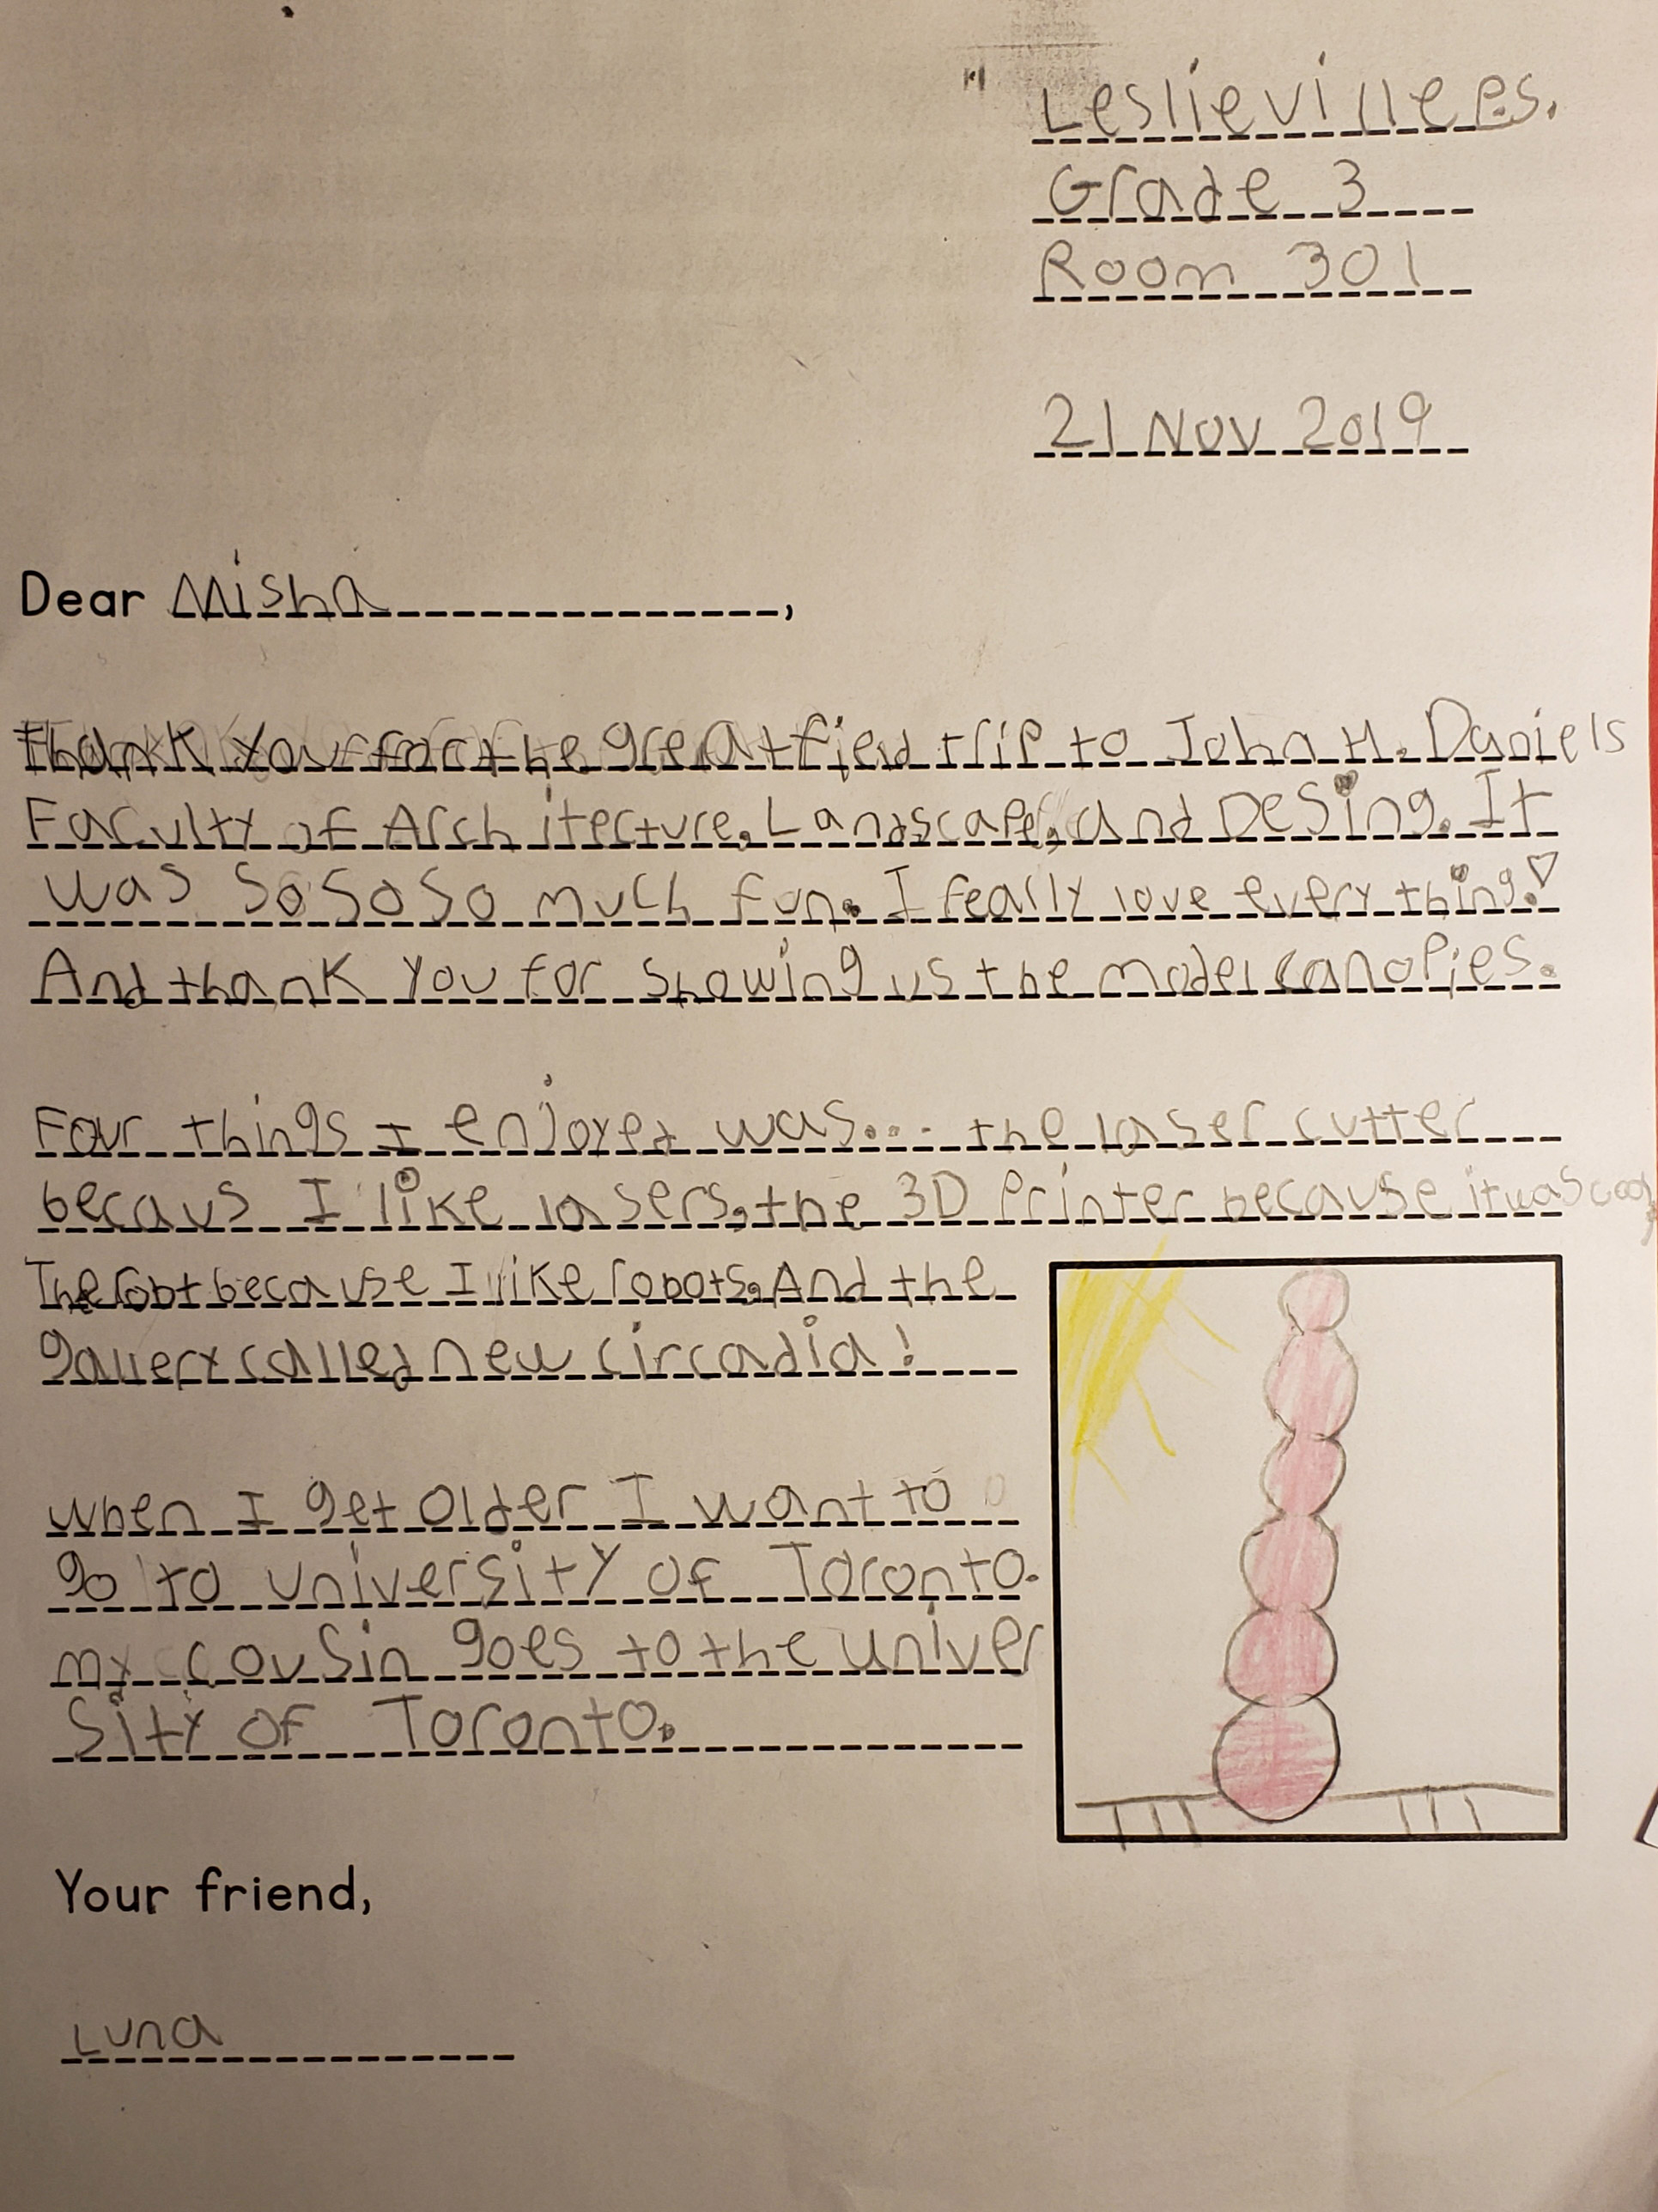 Leslieville P.S.
Grade 3
Room 301
21 Nov 2019
Dear Misha,
Thank you for the great fied trip to John H. Daniels
Faculty of Architecture, Landscape, and Desing. It
was so so so much fun. I really love every thing!
And thank you for showing us the model canopies.
Four things I enjoyed was... the laser cutter
becaus I like lasers, the 3D Printer because it was cool,
The robt because I like robots. And the
gallery called new circadia!
when I get older I want to
go to university of Toronto.
my cousin goes to the univer
sity of Toronto.
Your friend,
Luna